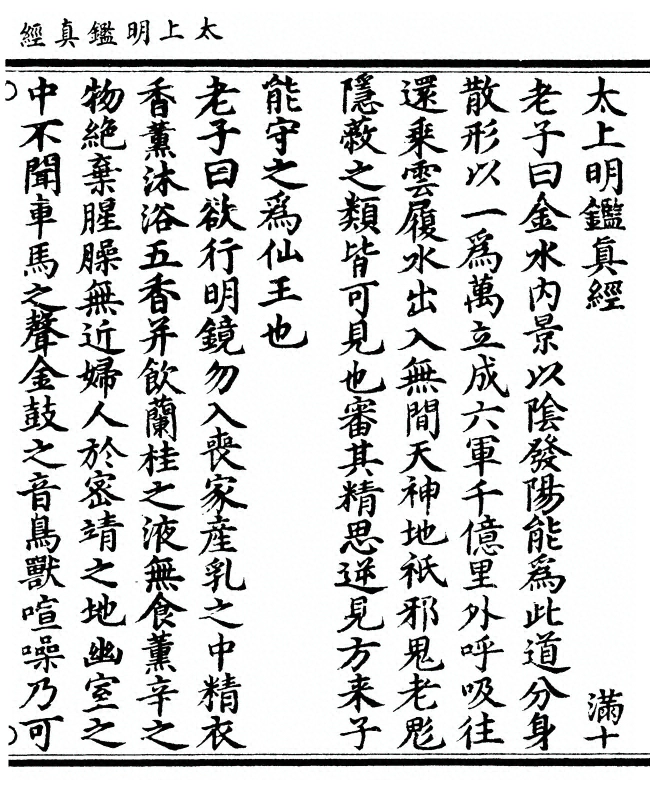 太上明鑑真經
太上明鑑真經 滿十
老子曰金水内景以陰發陽能爲此道分身
散形以一爲萬立成六軍千億里外呼吸往
還乗雲履水出入無間天神地祇邪鬼老魅
隱蔽之類皆可見也審其精思逆見方来子
能守之爲仙王也
老子曰欲行明鏡勿入喪家産乳之中精衣
香薰沐浴五香并飲蘭桂之液無食薰辛之
物絶棄腥臊無近婦人於密靖之地幽室之
中不聞車馬之聲金鼓之音鳥獸喧噪乃可